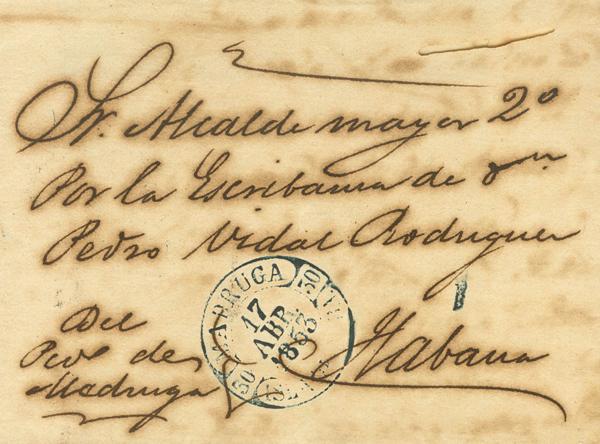 Sr. Alcalde mayor 2º
Por la Escribania de
Pedro Vidal Rodriguez
Del
de
Madruga
Habana
1
17
ABR
1853
50
50